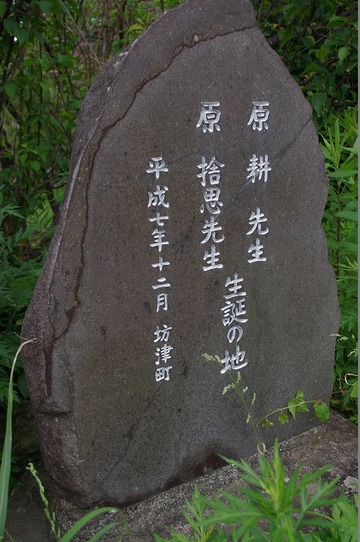 原 耕 先生
原 捨思先生
生誕の地
平成七年十二月 坊津町